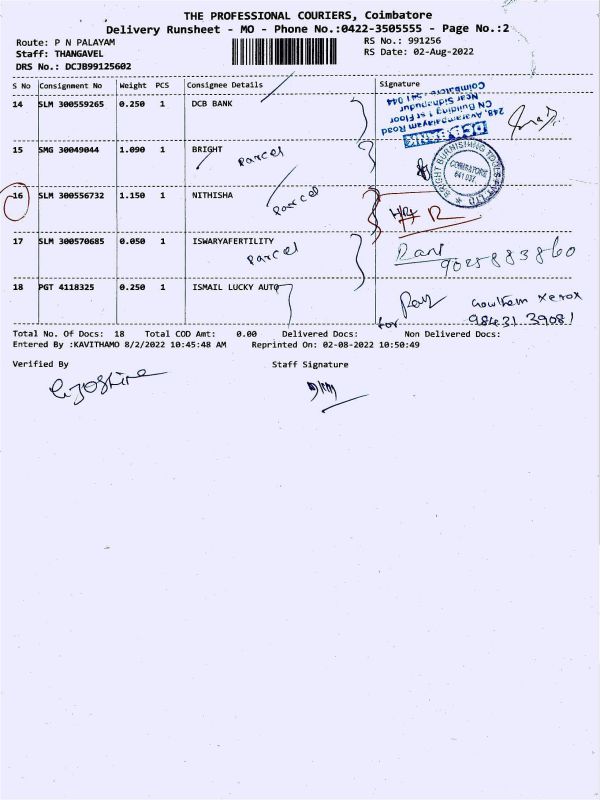 THE PROFESSIONAL COURIERS, Coimbatore
Delivery Runsheet - MO - Phone No.:0422-3505555 - Page No.:2
Route: P N PALAYAM RS No.: 991256
Staff: THANGAVEL RS Date: 02-Aug-2022
DRS No.: DCJB99125602
S No Consignment No Weight PCS Consignee Details Signature
14 SLM 300559265 0.250 1 DCB BANK
DCB BANK
248, Avarampalayam Road
CN Building 1st Floor
Near Sidhapudur
Coimbatore-641 044
15 SMG 30049044 1.090 1 BRIGHT
Parcel
BRIGHT BURNISHING TOOLS PVT LTD
COIMBATORE
641 037
16 SLM 300556732 1.150 1 NITHISHA
Parcel
17 SLM 300570685 0.050 1 ISWARYAFERTILITY
Parcel
Rani
9025883860
18 PGT 4118325 0.250 1 ISMAIL LUCKY AUTO
Gowtham Xerox
for 98431 39081
Total No. Of Docs: 18 Total COD Amt: 0.00 Delivered Docs: Non Delivered Docs:
Entered By :KAVITHAMO 8/2/2022 10:45:48 AM Reprinted On: 02-08-2022 10:50:49
Verified By Staff Signature